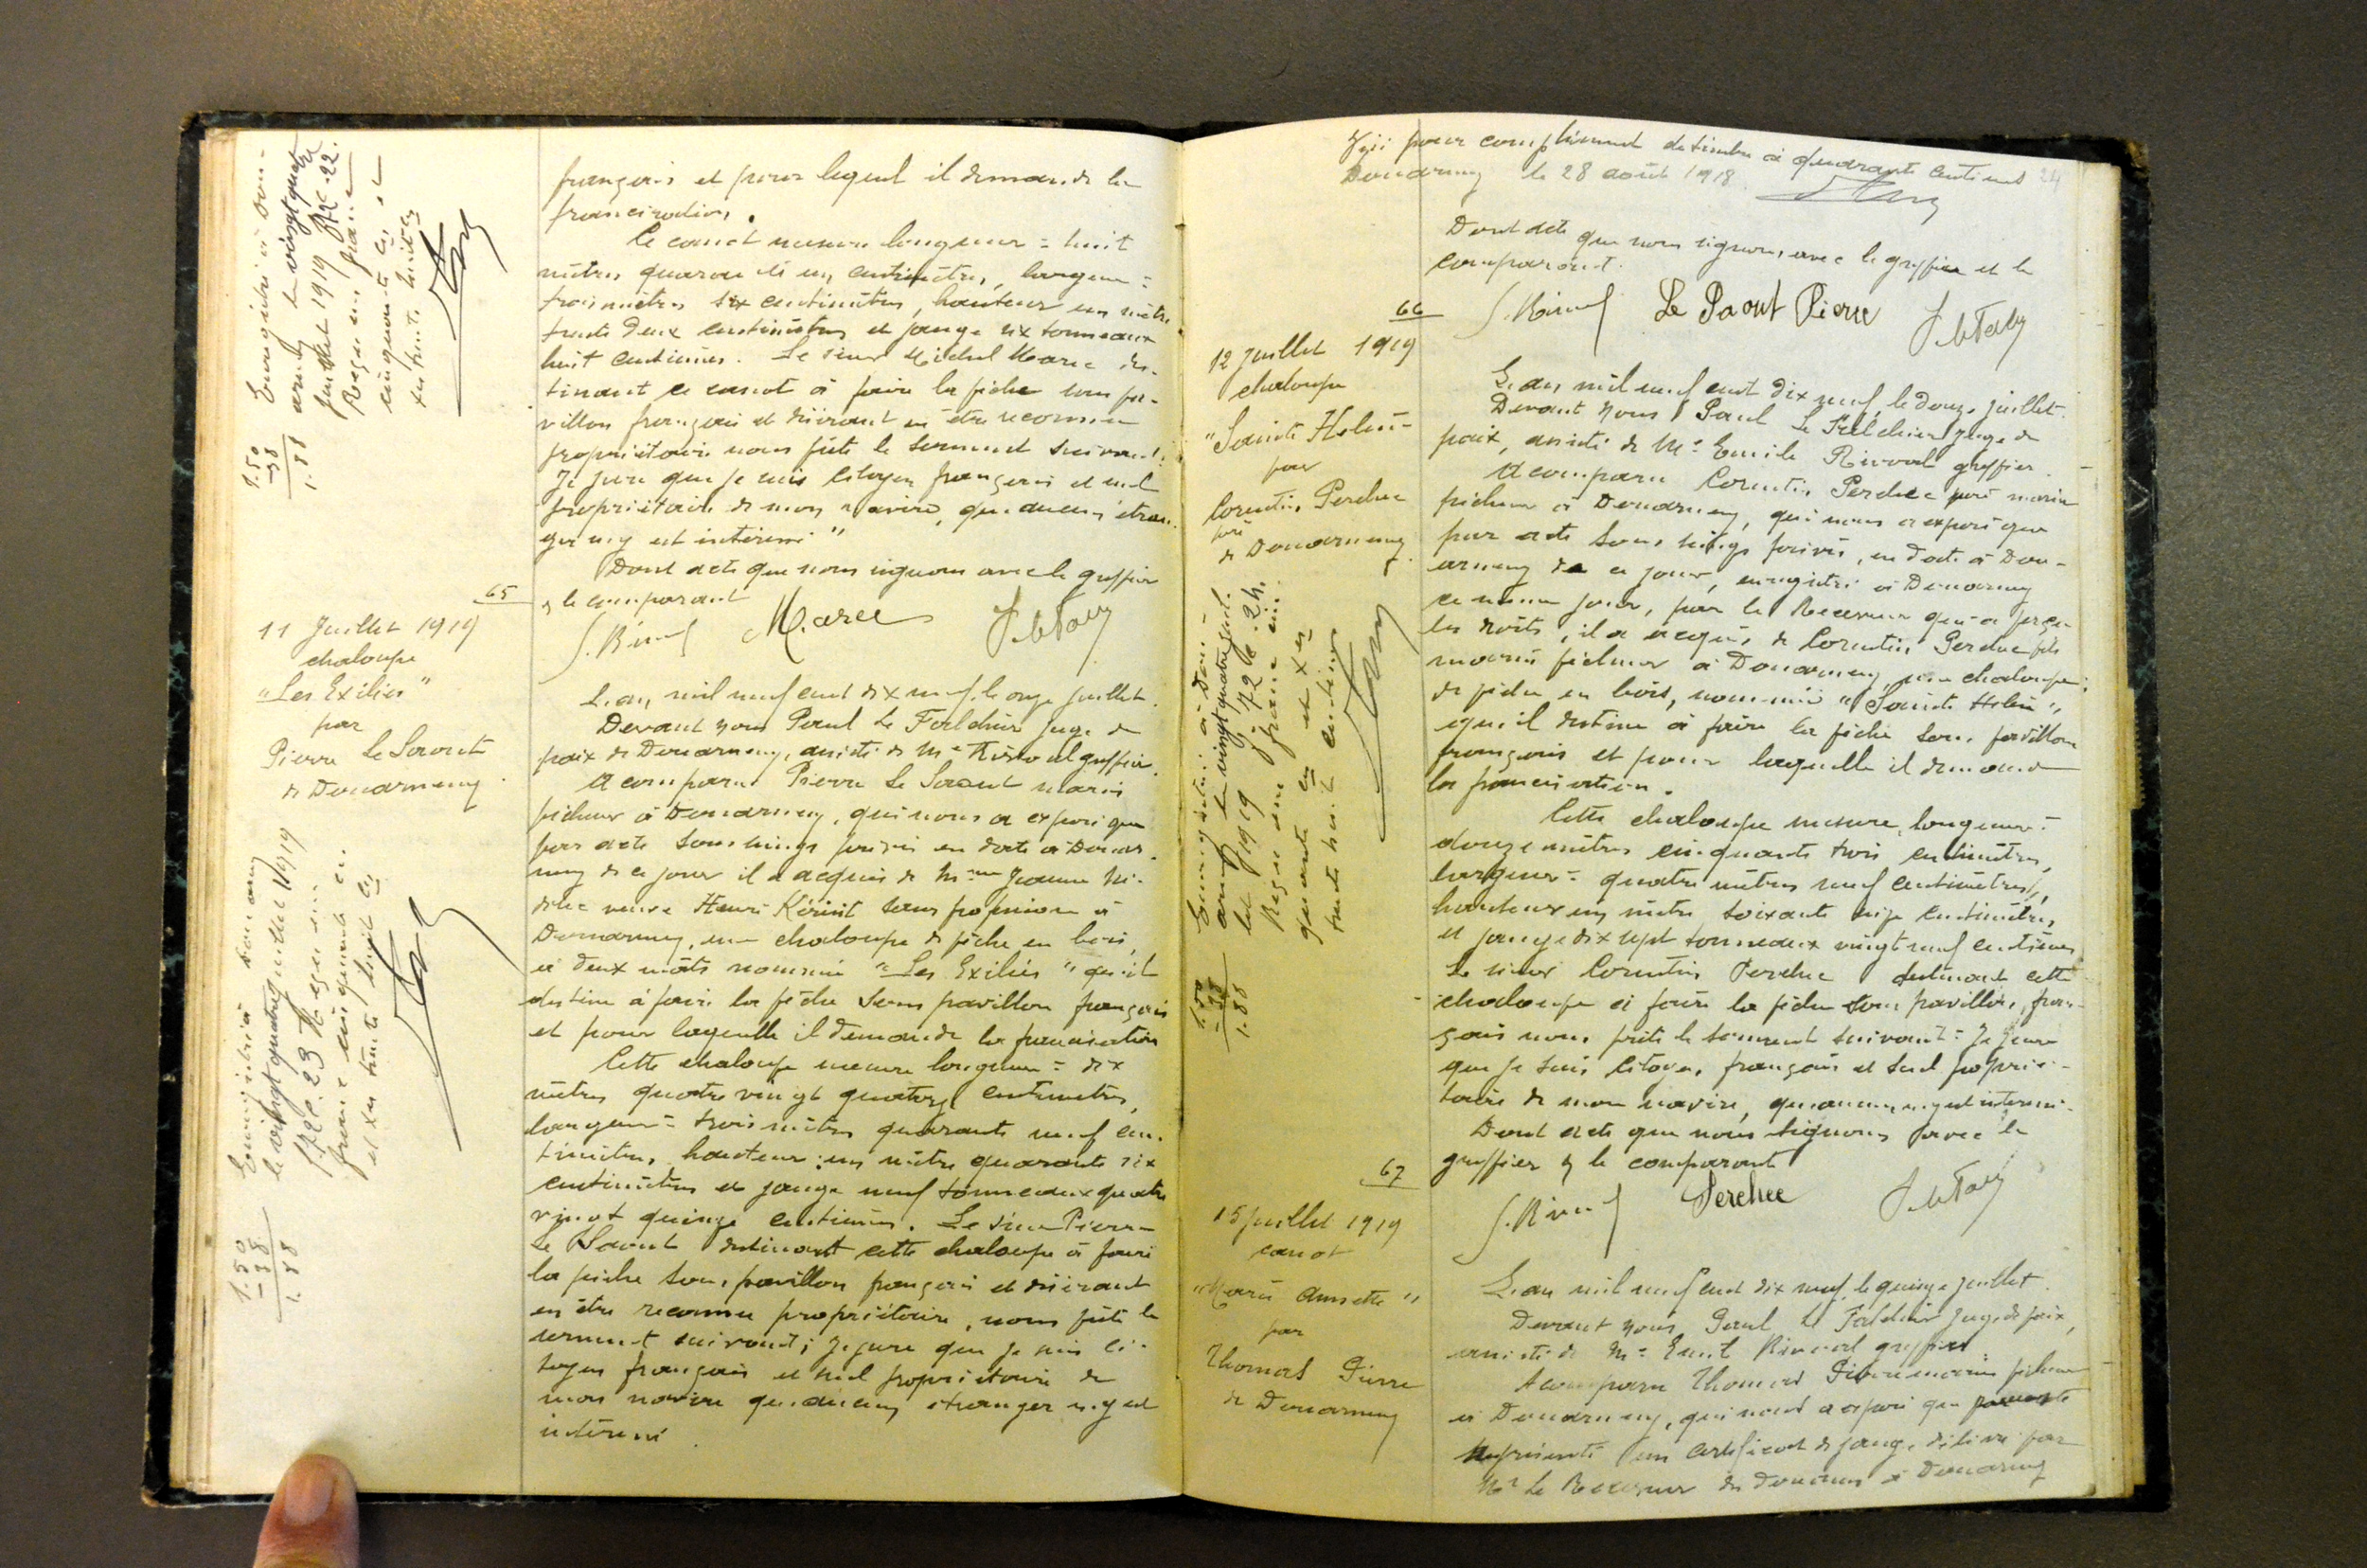 français et pour lequel il demande la
francisation.
Ce canot mesure longueur = huit
mètres quarante un centimètres, largeur =
trois mètres six centimètres, hauteur un mètre
trente deux centimètres et jauge six tonneaux
huit centièmes. Le sieur Michel Marec des-
tinant ce canot à faire la pêche sous pa-
villon français et désirant en être reconnu
propriétaire nous prête le serment suivant:
Je jure que je suis citoyen français et seul
propriétaire de mon navire, qu'aucun étran-
ger n'y est intéressé"
Dont acte que nous signons avec le greffier
& le comparant
Marec
Enregistré à Dou-
arnenez le vingt quatre
juillet 1919 f° 72 c. 22.
Reçu un franc
cinquante ces et
xes trente huit ces
1.50
-38
1.88
65
11 Juillet 1919
chaloupe
"Les Exilés"
par
Pierre Le Savout
de Douarnenez
L'an mil neuf cent dix neuf, le onze juillet.
Devant nous Paul Le Juge de
paix de Douarnenez, assisté de Me greffier.
A comparu Pierre Le marin
pêcheur à Douarnenez, qui nous a exposé que
par acte sous seings privés en date à Douar-
nenez de ce jour il a acquis de Mme Jeanne
veuve Henri sans profession à
Douarnenez, une chaloupe de pêche en bois,
à deux mâts nommée "Les Exilés" qu'il
destine à faire la pêche sous pavillon français
et pour laquelle il demande la francisation
Cette chaloupe mesure longueur = dix
mètres quatre vingt quatorze centimètres,
largeur = trois mètres quarante neuf cen-
timètres, hauteur: un mètre quarante six
centimètres et jauge neuf tonneaux quatre
vingt quinze centièmes. Le sieur Pierre
Le destinant cette chaloupe à faire
la pêche sous pavillon français et désirant
en être reconnu propriétaire, nous prête le
serment suivant; Je jure que je suis ci-
toyen français et seul propriétaire de
mon navire qu'aucun étranger n'y est
intéressé.
Enregistré à Douarnenez
le vingt quatre juillet 1919
f° 72 c. 23 Reçu un
franc cinquante ces
et xes trente huit ces
1.50
-38
1.88
pour complément de timbre à quarante centimes 24
Douarnenez le 28 août 1918.
Dont acte que nous signons, avec le greffier et le
comparant.
Le Paout Pierre
66
12 Juillet 1919
chaloupe
"Sainte Hélène
par
Corentin Perchec
père
de Douarnenez
L'an mil neuf cent dix neuf, le douze juillet.
Devant nous Paul Le juge de
paix, assisté de Me Emile greffier.
A comparu Corentin Perchec père marin
pêcheur à Douarnenez, qui nous a exposé que
par acte sous seings privés, en date à Dou-
arnenez de ce jour, enregistré à Douarnenez
ce même jour, par le Receveur qui a perçu
les droits, il a acquis de Corentin Perchec fils
marin pêcheur à Douarnenez, une chaloupe
de pêche en bois, nommée "Sainte Hélène",
qu'il destine à faire la pêche sous pavillon
français et pour laquelle il demande
la francisation.
Cette chaloupe mesure, longueur =
douze mètres cinquante trois centimètres,
largeur = quatre mètres neuf centimètres,
hauteur un mètre soixante seize centimètres,
et jauge dix sept tonneaux vingt neuf centièmes
Le sieur Corentin Perchec destinant cette
chaloupe à faire la pêche sous pavillon, fran-
çais nous prête le serment suivant: Je jure
que je suis citoyen français et seul proprié-
taire de mon navire, qu'aucun n'y est intéressé.
Dont acte que nous signons avec le
greffier & le comparant
Perchec
Enregistré à Dou-
arnenez le vingt quatre juil-
let 1919 f° 72 c. 24.
Reçu un franc cin-
quante ces et xes
trente huit centimes
1.50
-38
1.88
67
15 Juillet 1919
canot
"Marie Annette"
par
Thomas Pierre
de Douarnenez
L'an mil neuf cent dix neuf, le quinze juillet.
Devant nous, Paul Le Juge de paix,
assisté de Me greffier.
A comparu Thomas Pierre marin pêcheur
à Douarnenez, qui nous a exposé que
représente un certificat de jauge délivré par
Mr Le Receveur des Douanes à Douarnenez